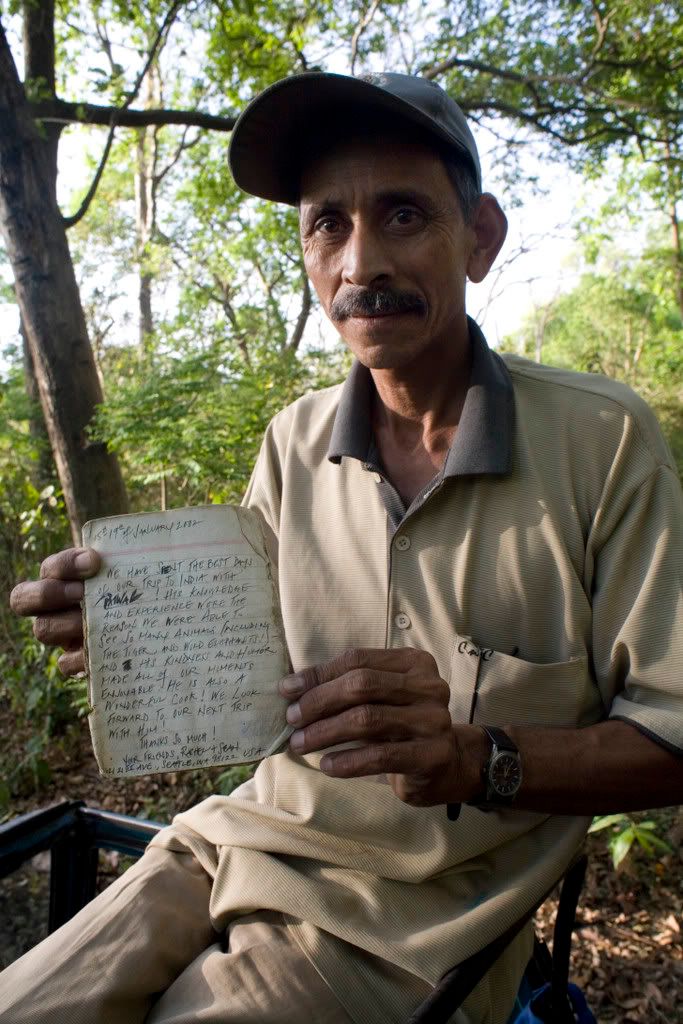 15th 19th of JANUARY 2002
WE HAVE SPENT THE BEST DAYS
OF OUR TRIP TO INDIA WITH
! HIS KNOWLEDGE
AND EXPERIENCE WERE THE
REASON WE WERE ABLE TO
SEE SO MANY ANIMALS (INCLUDING
THE TIGER, AND WILD ELEPHANTS!)
AND HIS KINDNESS AND HUMOR
MADE ALL OF OUR MOMENTS
ENJOYABLE. HE IS ALSO A
WONDERFUL COOK! WE LOOK
FORWARD TO OUR NEXT TRIP
WITH HIM!
THANKS SO MUCH!
YOUR FRIENDS, RACHEL + SEAN
AVE, SEATTLE, WA 98122 USA